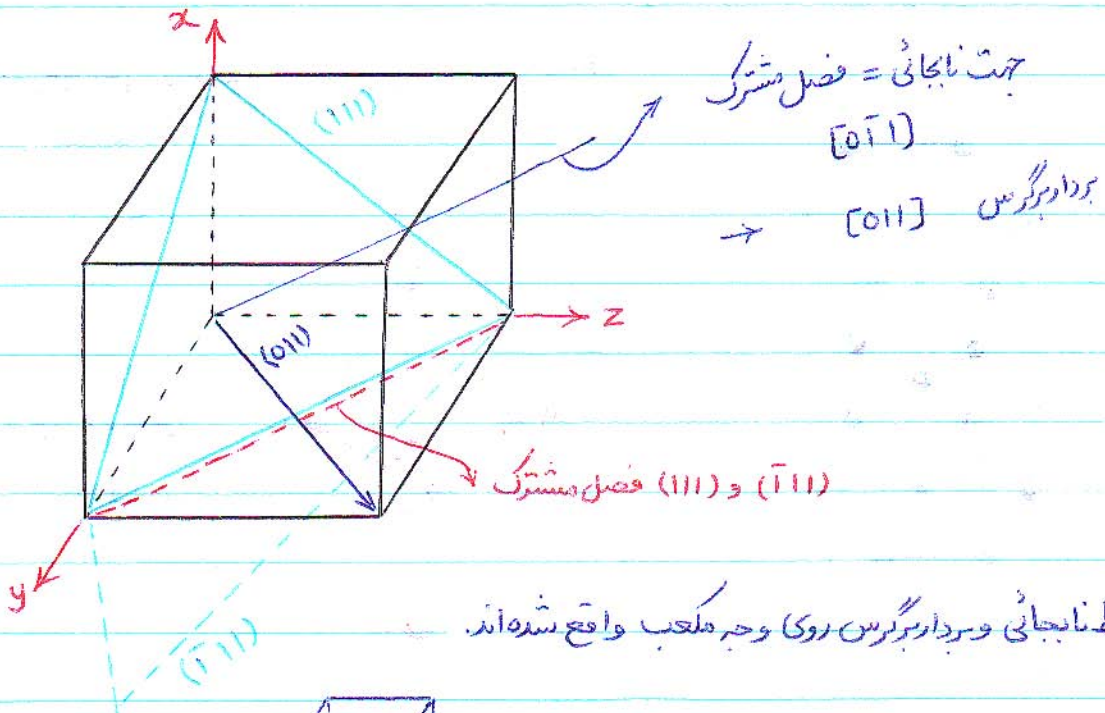 x
(111)
جهت نابجائی = فصل مشترک
[01̄1]
بردار برگرس [011] →
z
(011)
فصل مشترک (111) و (1̄11)
y
نابجائی و بردار برگرس روی وجه مکعب واقع شده‌اند.
(1̄11)